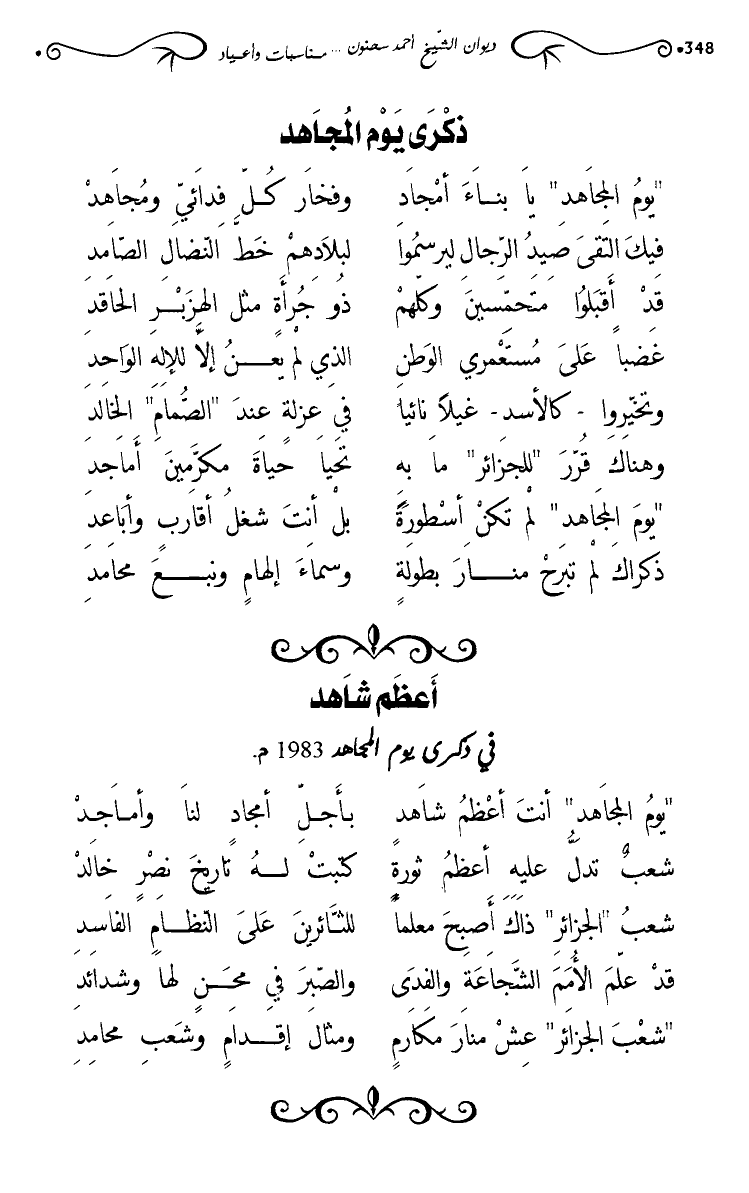 348 ديوان الشّيخ أحمد سحنون ... مناسبات وأعياد
ذكْرَى يَوْم المُجاَهد
"يومُ المجاهد" ياَ بنـاءَ أمْجاَدِ وفخاَر كُـلِّ فدائيّ ومُجاهِدْ
فيكَ التّقىَ صيدُ الرّجال ليرسمُوا لبلاَدهمْ خَطَّ النّضال الصّامدِ
قدْ أَقبَلوُا متحمّسينَ وكلّهمْ ذو جُرأَةٍ مثل الهزَبْـرِ الحاقدِ
غضباً علىَ مُستعْمري الوَطنِ الذي لمْ يعـنُ إلاَّ للإلهِ الوَاحِدِ
وتخيّروا - كالأسد- غيلاً نائياً في عزلةٍ عندَ "الصُّمامِ" الخالدِ
وهناكَ قُرّرَ "للجزائر" ما به تحياَ حياةَ مكرَّمينَ أَماجدِ
"يومَ المجاهد" لمْ تكنْ أسْطورَةً بلْ أنتَ شغلُ أقاربٍ وأباَعدِ
ذكراكَ لمْ تبرَحْ منـارَ بطولةٍ وسماءَ إلهامٍ ونبـعَ محامدِ
أَعظَم شاَهد
في ذكرى يوم المجاهد 1983 م.
"يومُ المجاهد" أنتَ أعْظمُ شاهدٍ بأَجـلِّ أمجادٍ لناَ وأماَجـدْ
شعبٌ تدلُّ عليهِ أعظمُ ثورةٍ كتبتْ لـهُ تاريخَ نصْرٍ خالدْ
شعبُ "الجزائرِ" ذاكَ أَصبحَ معلماً للثّائرينَ علىَ النّظـامِ الفاسدِ
قدْ علّمَ الأُمَمَ الشّجاعَةَ والفدَى والصّبرَ في محـَنٍ لهاَ وشدائدِ
"شعْبَ الجزائر" عشْ منارَ مكارمٍ ومثال إقـدامٍ وشَعبِ محامدِ